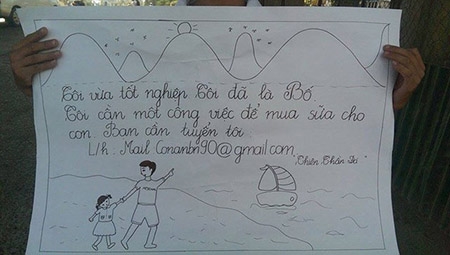 Tôi vừa tốt nghiệp Tôi đã là Bố
Tôi cần một công việc để mua sữa cho
con. Bạn cần tuyển tôi.
L/h. Mail Conanbn90@gmail.com